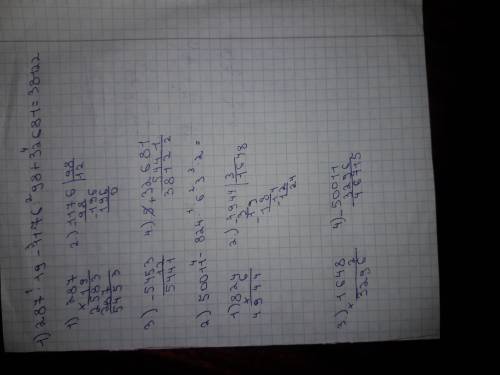 1) 287 · 19 - 1176 : 98 + 32681 = 38122
1) 287
× 19
2583
287
5453
2) 1176 | 98
98 | 12
-196
196
0
3) -5453
12
5441
4) +32681
5441
38122
2) 50011 - 824 · 6 : 3 · 2 =
1) 824
× 6
4944
2) -4944 | 3
3 | 1648
-19
18
-14
12
24
3) ×1648
2
3296
4) -50011
3296
46715